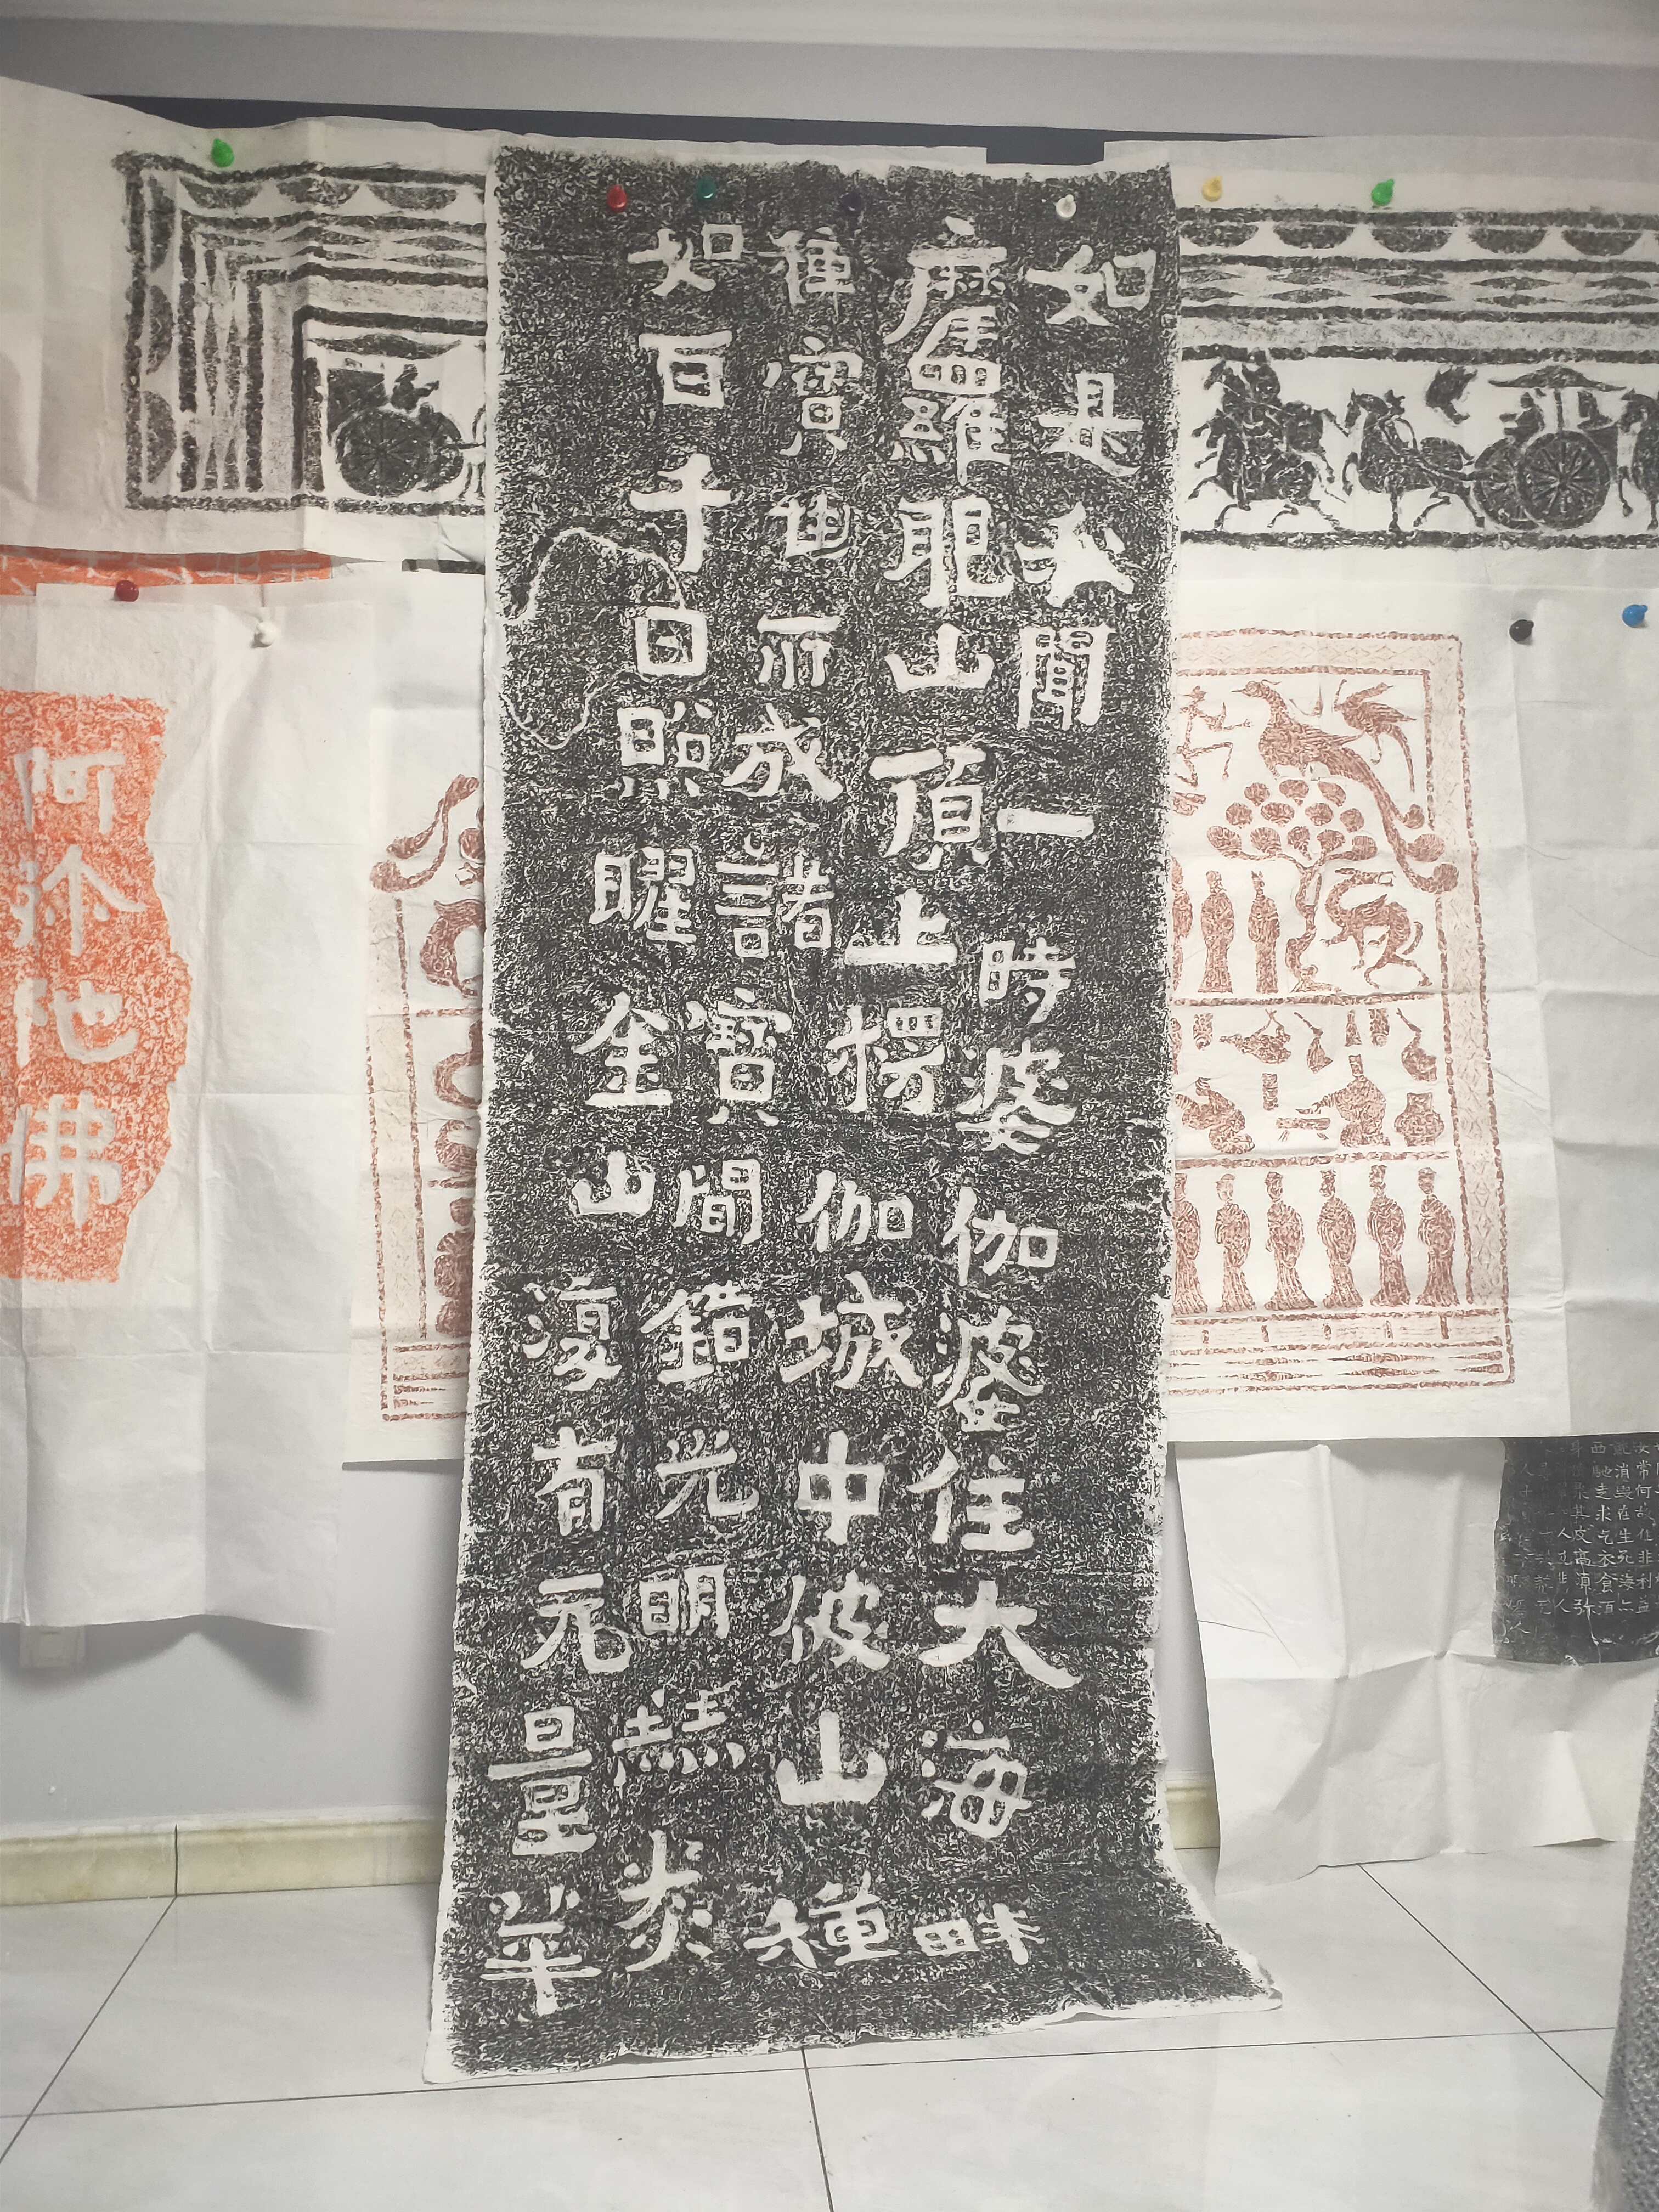 如是我聞一時婆伽婆住大海畔
摩羅耶山頂上楞伽城中彼山種
種寶性所成諸寶間錯光明赫炎
如百千日照曜金山復有无量華
阿弥陀佛